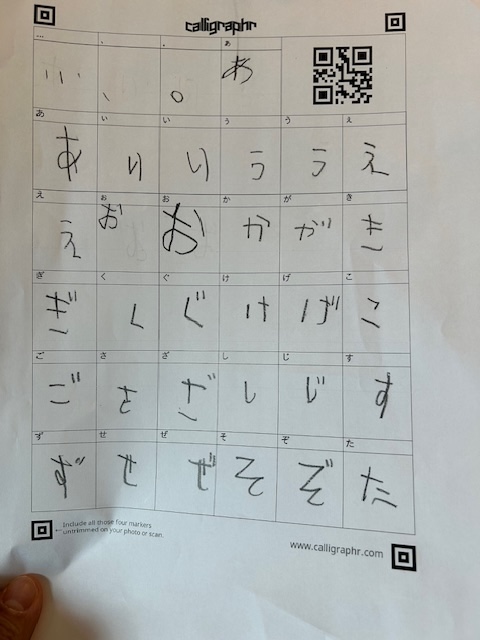 calligraphr
… 、 。 ぁ
''' 、 。 あ
あ ぃ い ぅ う ぇ
あ い い う う え
え ぉ お か が き
え お お か が き
ぎ く ぐ け げ こ
ぎ く ぐ け げ こ
ご さ ざ し じ す
ご さ ざ し じ す
ず せ ぜ そ ぞ た
ず せ ぜ そ ぞ た
Include all those four markers
untrimmed on your photo or scan.
www.calligraphr.com